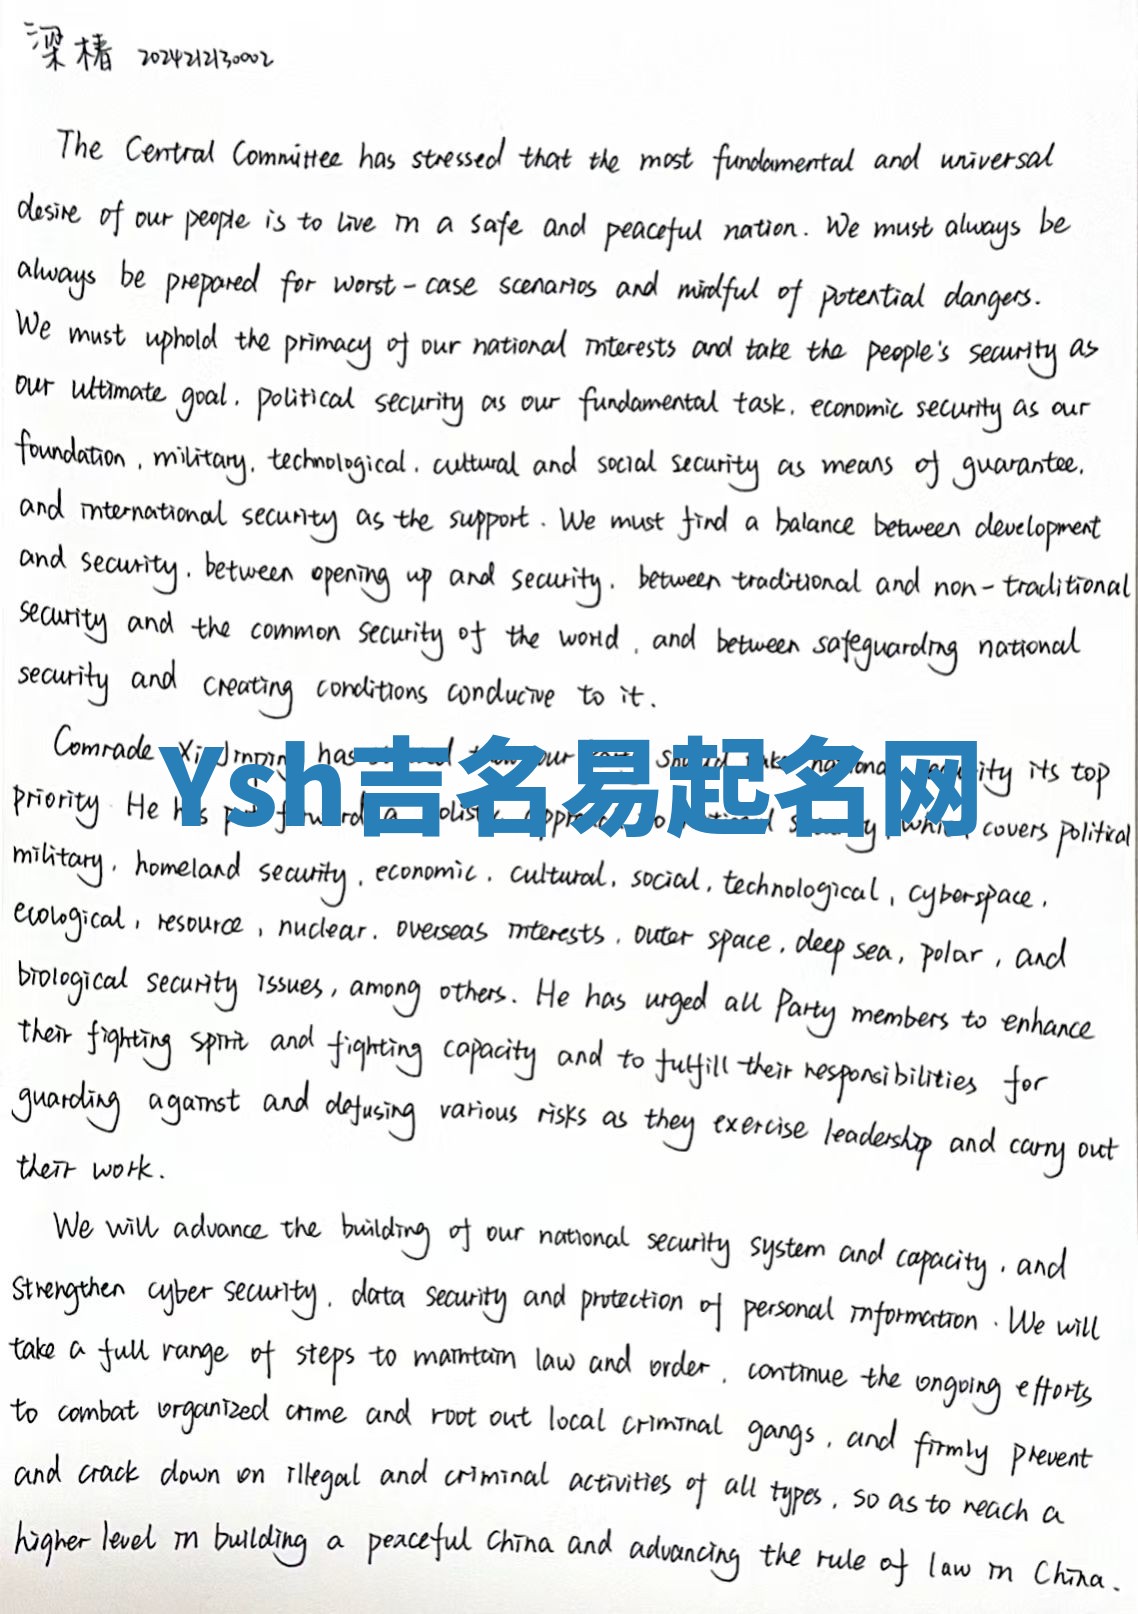 梁椿 2024212130002
The Central Committee has stressed that the most fundamental and universal
desire of our people is to live in a safe and peaceful nation. We must always be
always be prepared for worst-case scenarios and mindful of potential dangers.
We must uphold the primacy of our national interests and take the people's security as
our ultimate goal, political security as our fundamental task, economic security as our
foundation, military, technological, cultural and social security as means of guarantee,
and international security as the support. We must find a balance between development
and security, between opening up and security, between traditional and non-traditional
security and the common security of the world, and between safeguarding national
security and creating conditions conducive to it.
Comrade Xi Jinping has our its top
Ysh吉名易起名网
priority He has covers political
military, homeland security, economic, cultural, social, technological, cyberspace,
ecological, resource, nuclear, overseas interests, outer space, deep sea, polar, and
biological security issues, among others. He has urged all Party members to enhance
their fighting spirit and fighting capacity and to fulfill their responsibilities for
guarding against and defusing various risks as they exercise leadership and carry out
their work.
We will advance the building of our national security system and capacity, and
strengthen cyber security, data security and protection of personal information. We will
take a full range of steps to maintain law and order, continue the ongoing efforts
to combat organized crime and root out local criminal gangs, and firmly prevent
and crack down on illegal and criminal activities of all types, so as to reach a
higher level in building a peaceful China and advancing the rule of law in China.